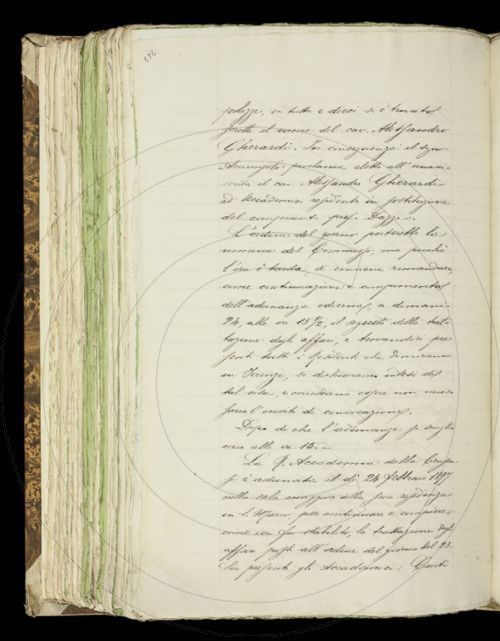 376
schizze, in tutte e dieci si è trovato
scritto il nome del cav. Alessandro
Gherardi. In conseguenza il Sigr
Arciconsolo proclama eletto all'unani-
mità il cav. Alessandro Gherardi
ad Accademico residente in sostituzione
del compianto prof. Dazzi.
L'ordine del giorno porterebbe la
nomina del Commesso, ma poichè
l'ora è tarda, si conviene rimandare
come continuazione e compimento
dell'adunanza odierna, a domani
24, alle ore 15 1/2, il seguito della trat-
tazione degli affari, e trovandosi pre-
senti tutti i residenti che dimorano
in Firenze, si dichiarano intesi di
tal cosa, e concordano essere non neces-
sario l'invito di convocazione.
Dopo di che l'adunanza si scioglie
circa alle ore 18.
La R. Accademia della Crusca
si è adunata il dì 24 Febbraio 1897
nella sala maggiore della sua residenza
in S. Marco, per continuare e compiere
come era fu stabilito, la trattazione degli
affari posti all'ordine del giorno del 23.
Son presenti gli Accademici: Conti